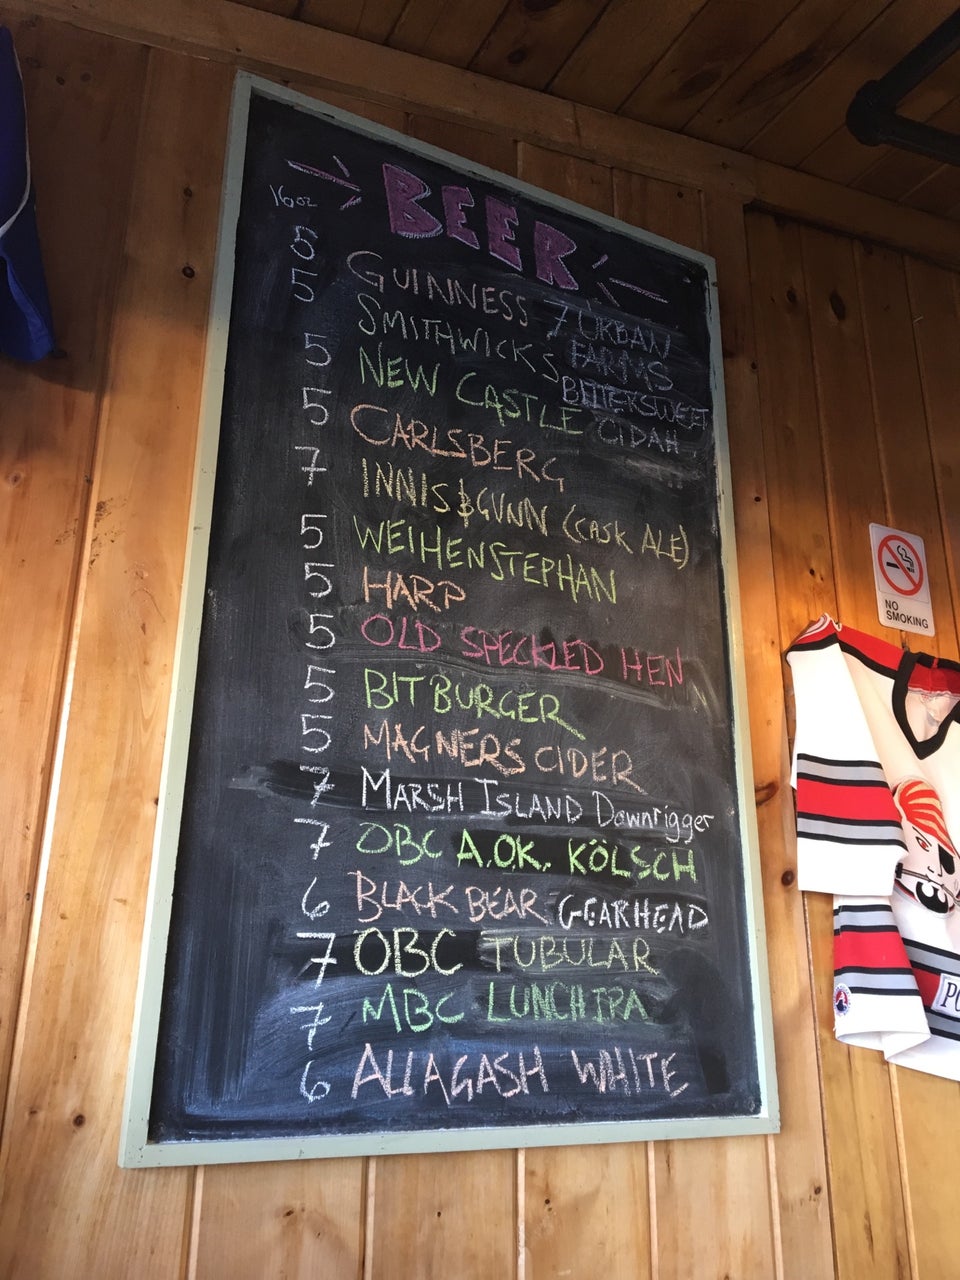 BEER
16oz
5 GUINNESS
5 SMITHWICKS
5 NEW CASTLE
7 URBAN
FARMS
BITTERSWEET
CIDAH
5 CARLSBERG
7 INNIS & GUNN (CASK ALE)
5 WEIHENSTEPHAN
5 HARP
5 OLD SPECKLED HEN
5 BITBURGER
5 MAGNERS CIDER
7 MARSH ISLAND Downrigger
7 OBC A.OK. KÖLSCH
6 BLACK BEAR GEARHEAD
7 OBC TUBULAR
7 MBC LUNCH IPA
6 ALLAGASH WHITE
NO
SMOKING